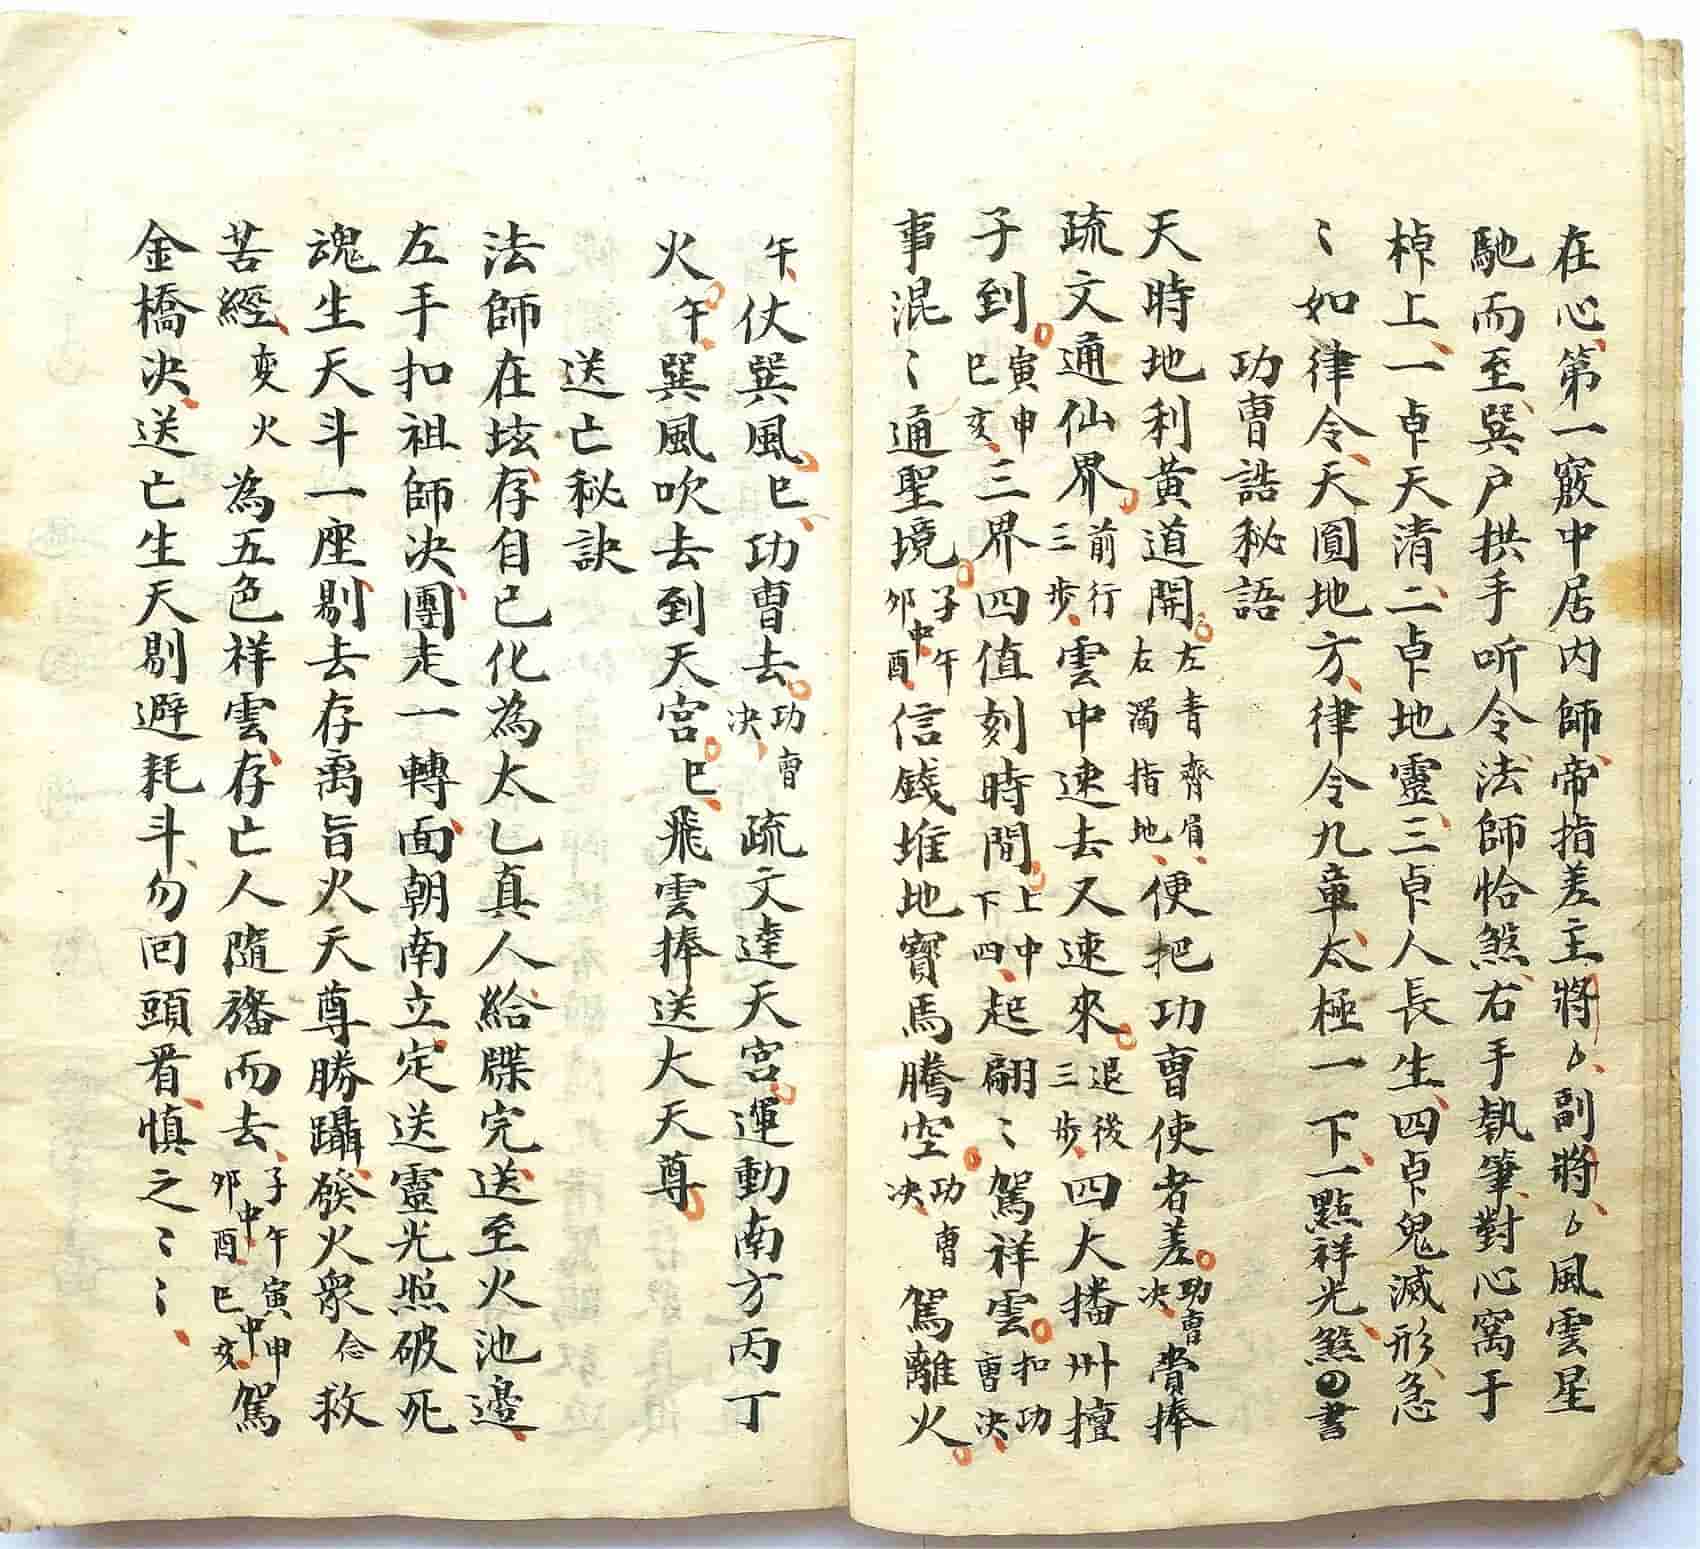 在心、第一竅中居内師、帝指差主將厶、副將、厶風雲星
馳而至、巽户拱手听令、法師恰煞、右手執筆、對心窩于
棹上、一卓天清、二卓地靈、三卓人長生、四卓鬼滅形、急
〻如律令、天圓地方、律令九章、太極一下、一點祥光、煞の書
功曹誥秘語
天時地利黄道開。左青齊眉、右濁指地、便把功曹使者差。功曹决、賫捧
疏文通仙界。前行三步、雲中速去又速來。退後三步、四大播州擅
子到。寅申巳亥、三界四值刻時間。上中下四、起翩〻駕祥雲。扣功曹决、
事混〻通聖境。子午中卯酉、信錢堆地寶馬騰空。功曹决、駕離火。
午、仗巽風。巳、功曹去。功曹决、疏文達天宮。運動南方丙丁
火。午、巽風吹去到天宮。巳、飛雲捧送大天尊。
送亡秘訣
法師在垓、存自己化為太乙真人、給牒完、送至火池邊、
左手扣祖師决、團走一轉、面朝南立定、送靈光照破死
魂生天斗一座、剔去存禹旨火天尊勝躡、發火衆念救
苦經、变火為五色祥雲、存亡人隨旛而去、子午中卯酉寅申中巳亥、駕
金橋决、送亡生天剔避耗斗、勿回頭看、慎之〻〻、